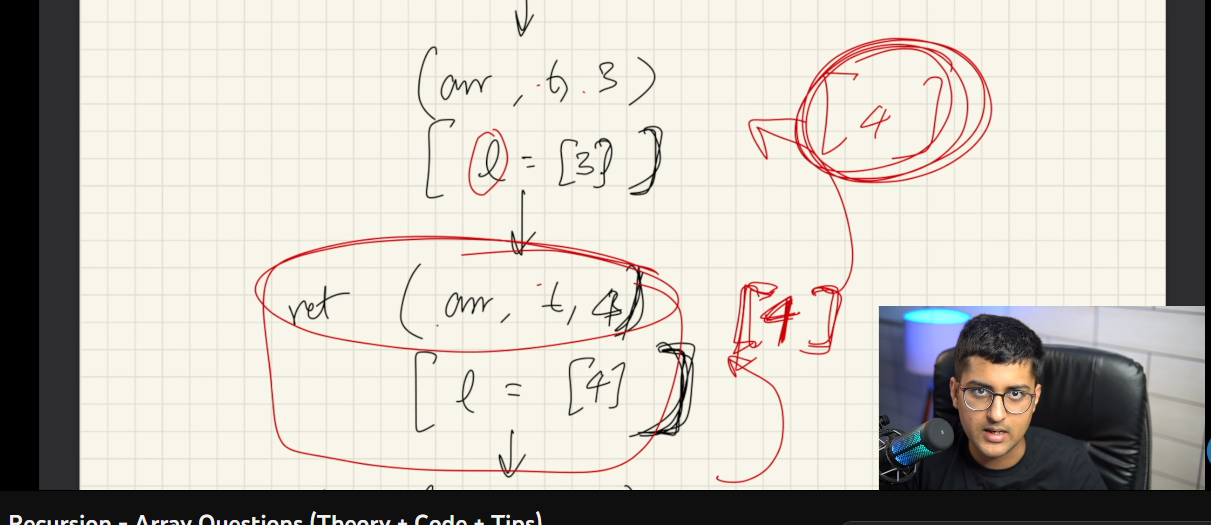 (arr, t, 3)
[4]
[l = [3]]
ret (arr, t, 4)
[4]
[l = [4]]
Recursion - Array Questions (Theory + Code + Tips)